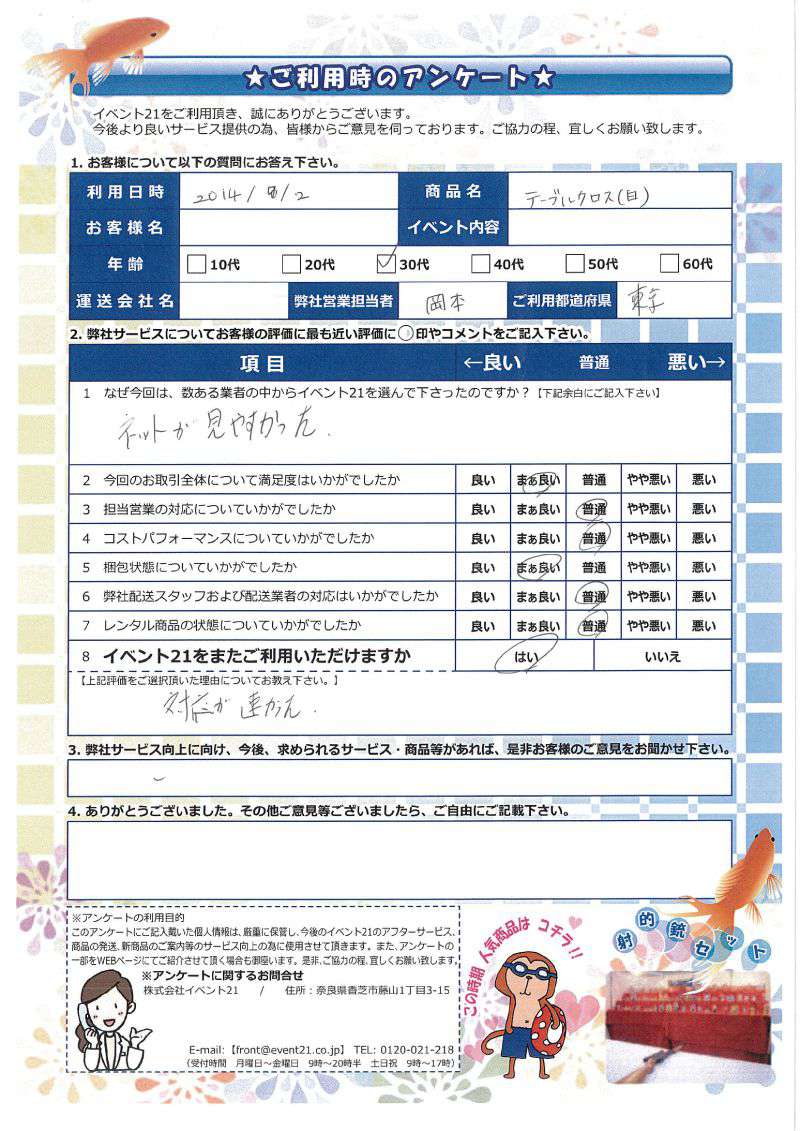 ★ご利用時のアンケート★
イベント21をご利用頂き、誠にありがとうございます。
今後より良いサービス提供の為、皆様からご意見を伺っております。ご協力の程、宜しくお願い致します。
1. お客様について以下の質問にお答え下さい。
利用日時 2014/8/2 商品名 テーブルクロス(白)
お客様名 イベント内容
年齢 10代 20代 30代 40代 50代 60代
運送会社名 弊社営業担当者 岡本 ご利用都道府県 東京
2. 弊社サービスについてお客様の評価に最も近い評価に○印やコメントをご記入下さい。
項目 ←良い 普通 悪い→
1 なぜ今回は、数ある業者の中からイベント21を選んで下さったのですか？【下記余白にご記入下さい】
ネットが見やすかった.
2 今回のお取引全体について満足度はいかがでしたか 良い まぁ良い 普通 やや悪い 悪い
3 担当営業の対応についていかがでしたか 良い まぁ良い 普通 やや悪い 悪い
4 コストパフォーマンスについていかがでしたか 良い まぁ良い 普通 やや悪い 悪い
5 梱包状態についていかがでしたか 良い まぁ良い 普通 やや悪い 悪い
6 弊社配送スタッフおよび配送業者の対応はいかがでしたか 良い まぁ良い 普通 やや悪い 悪い
7 レンタル商品の状態についていかがでしたか 良い まぁ良い 普通 やや悪い 悪い
8 イベント21をまたご利用いただけますか はい いいえ
【上記評価をご選択頂いた理由についてお教え下さい。】
対応が速かった.
3. 弊社サービス向上に向け、今後、求められるサービス・商品等があれば、是非お客様のご意見をお聞かせ下さい。
4. ありがとうございました。その他ご意見等ございましたら、ご自由にご記載下さい。
※アンケートの利用目的
このアンケートにご記入戴いた個人情報は、厳重に保管し、今後のイベント21のアフターサービス、
商品の発送、新商品のご案内等のサービス向上の為に使用させて頂きます。また、アンケートの
一部をWEBページにてご紹介させて頂く場合も御座います。是非、ご協力の程、宜しくお願い致します。
※アンケートに関するお問合せ
株式会社イベント21 / 住所：奈良県香芝市藤山1丁目3-15
E-mail:【front@event21.co.jp】 TEL: 0120-021-218
（受付時間 月曜日～金曜日 9時～20時半 土日祝 9時～17時）
この時期 人気商品は コチラ!!
射的銃セット